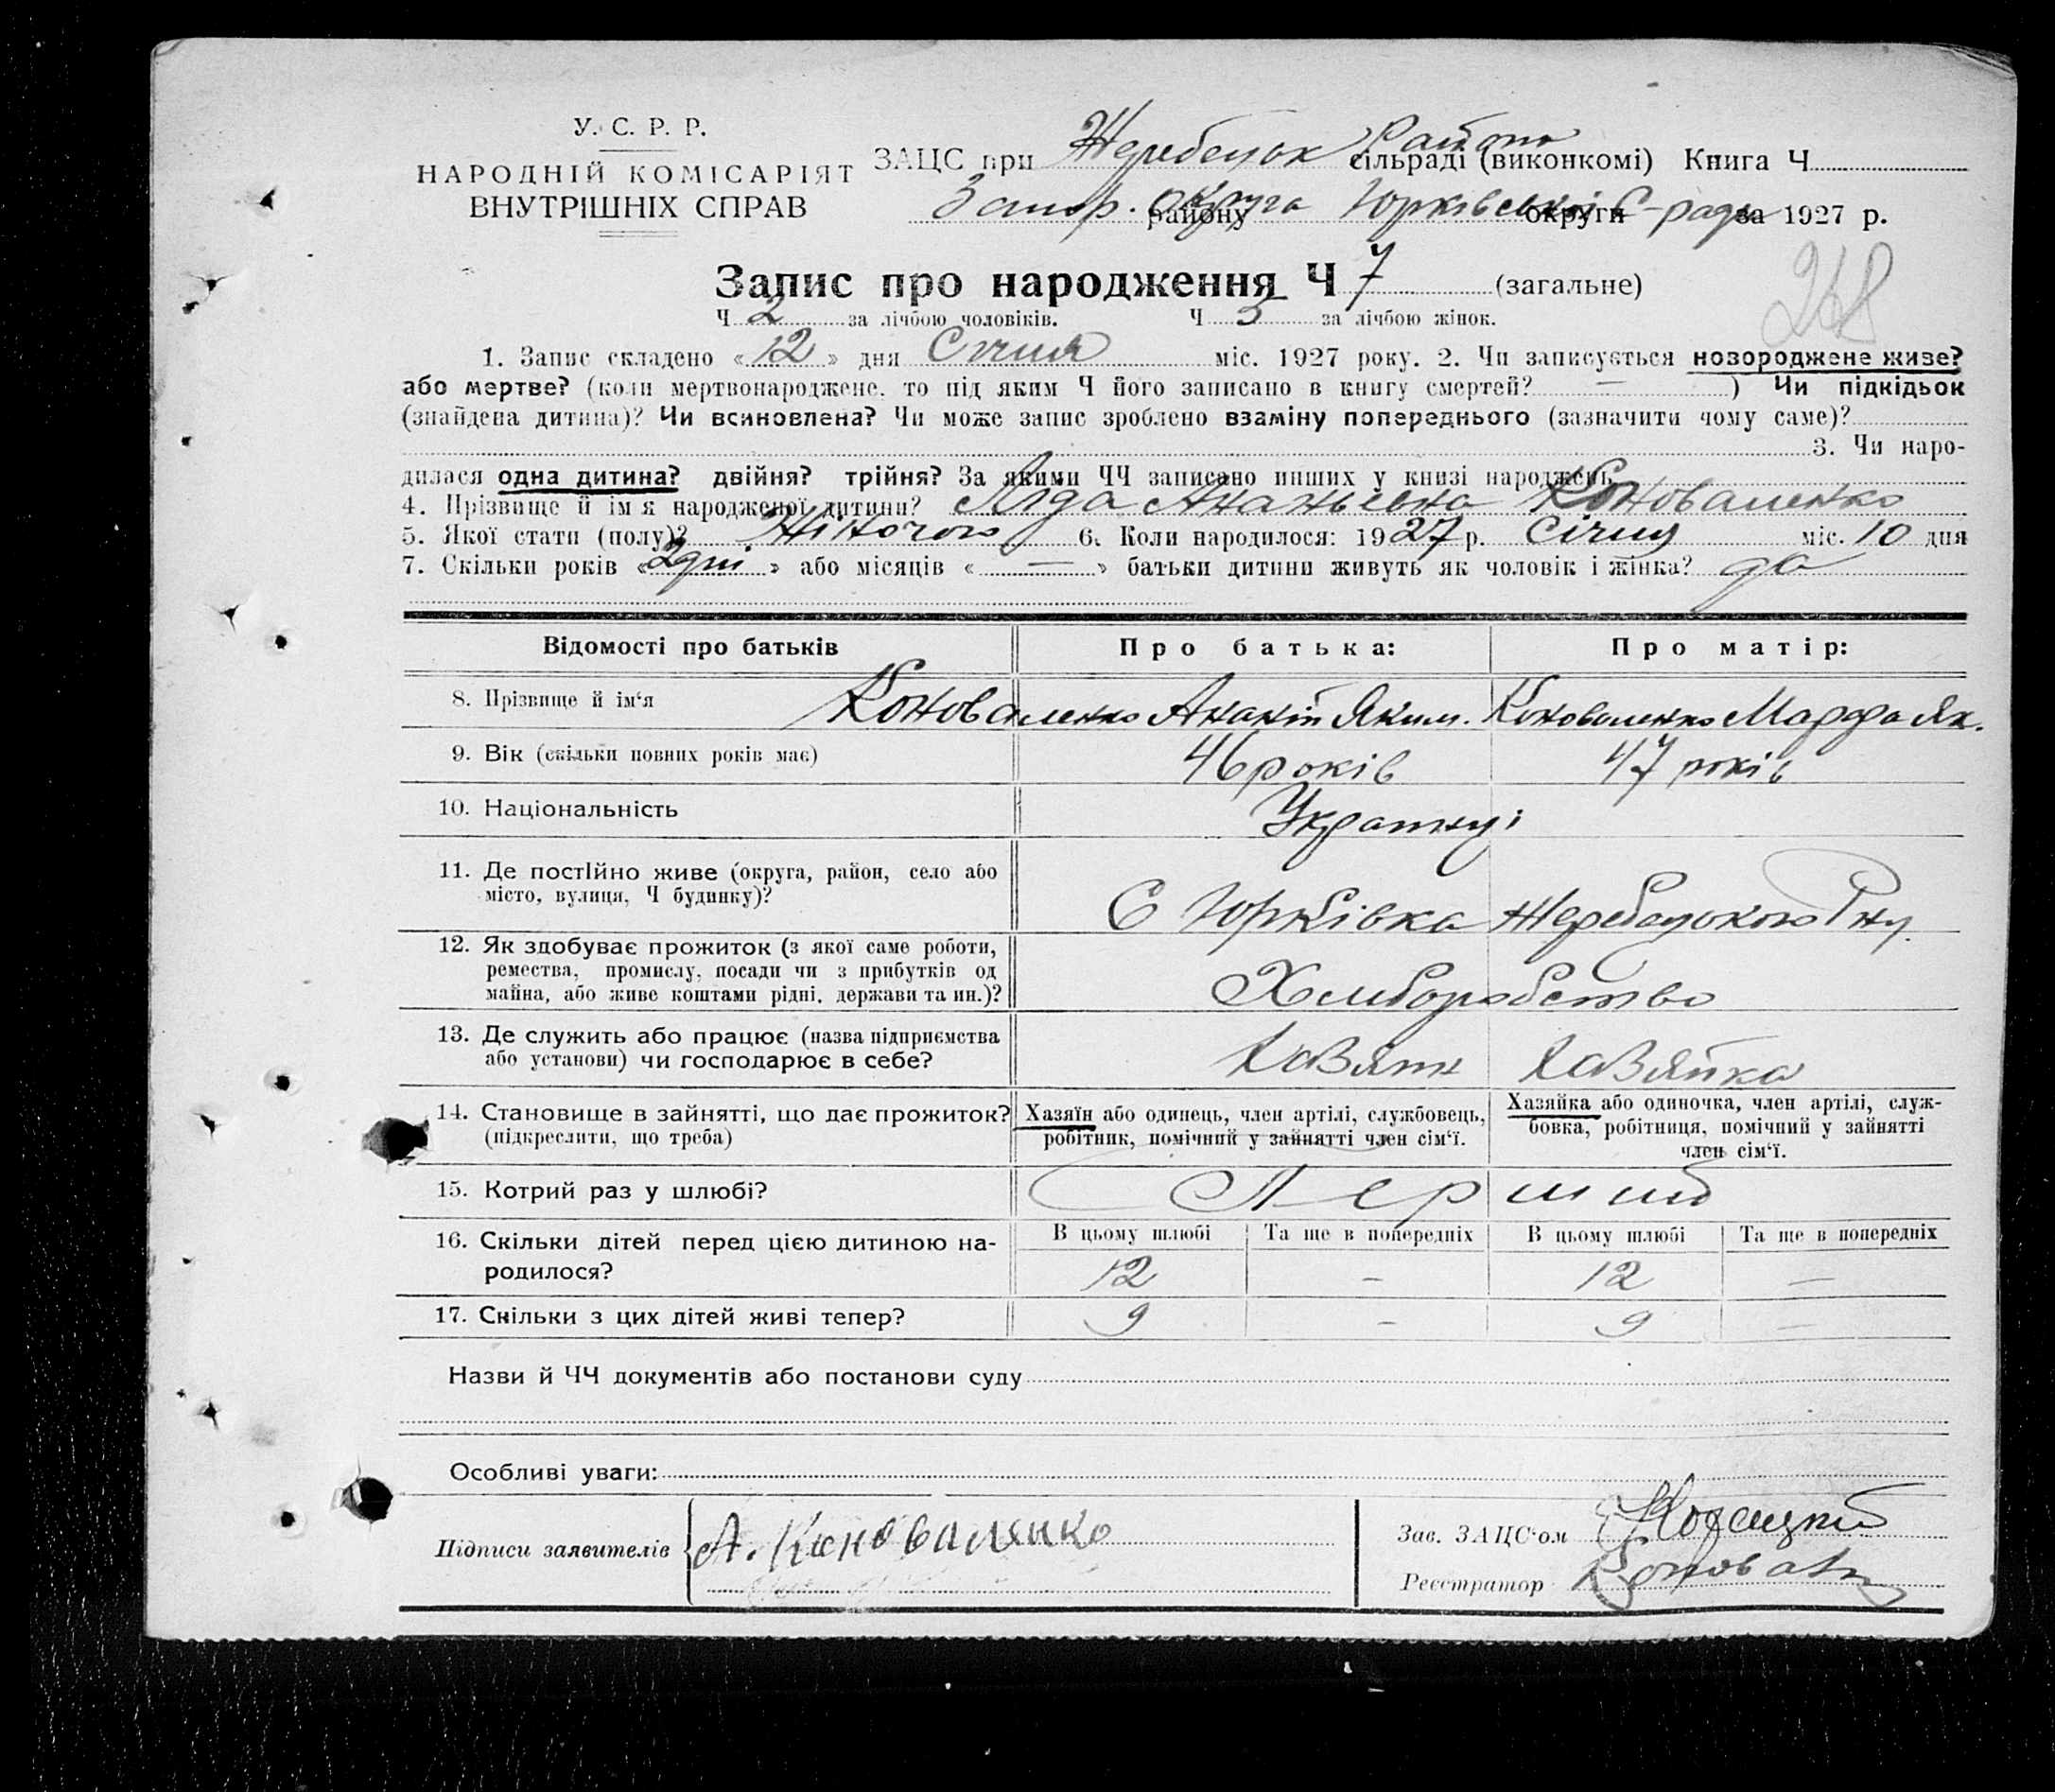 У. С. Р. Р.
НАРОДНІЙ КОМІСАРІЯТ
ВНУТРІШНІХ СПРАВ
ЗАЦС при Жеребецьк Району сільраді (виконкомі) Книга Ч
Запор. округа району Юрківської округи С-ради за 1927 р.
Запис про народження Ч 7 (загальне)
268
Ч 2 за лічбою чоловіків. Ч 5 за лічбою жінок.
1. Запис складено «12» дня Січня міс. 1927 року. 2. Чи записується новороджене живе?
або мертве? (коли мертвонароджене, то під яким Ч його записано в книгу смертей? — ) Чи підкідьок
(знайдена дитина)? Чи всиновлена? Чи може запис зроблено взаміну попереднього (зазначити чому саме)?
3. Чи наро-
дилася одна дитина? двійня? трійня? За якими ЧЧ записано инших у книзі народжень
4. Прізвище й ім'я народженої дитини? Ліда Ананьевна Коноваленко
5. Якої стати (полу)? Жіночою 6. Коли народилося: 1927 р. Січня міс. 10 дня
7. Скільки років «2 дні» або місяців « — » батьки дитини живуть як чоловік і жінка? да
Відомості про батьків Про батька: Про матір:
8. Прізвище й ім'я Коноваленко Ананій Яким. Коноваленко Марфа Як.
9. Вік (скільки повних років має) 46 років 47 років
10. Національність Українці
11. Де постійно живе (округа, район, село або
місто, вулиця, Ч будинку)? С Юрківка Жеребецького Р-ну
12. Як здобуває прожиток (з якої саме роботи,
ремества, промислу, посади чи з прибутків од
майна, або живе коштами рідні, держави та ин.)? Хліборобство
13. Де служить або працює (назва підприємства
або установи) чи господарює в себе? Хазяїн Хазяйка
14. Становище в зайнятті, що дає прожиток?
(підкреслити, що треба)
Хазяїн або одинець, член артілі, службовець,
робітник, помічний у зайнятті член сім'ї.
Хазяйка або одиночка, член артілі, служ-
бовка, робітниця, помічний у зайнятті
член сім'ї.
15. Котрий раз у шлюбі? Перший
16. Скільки дітей перед цією дитиною на-
родилося?
В цьому шлюбі Та ще в попередніх В цьому шлюбі Та ще в попередніх
12 — 12 —
17. Скільки з цих дітей живі тепер? 9 — 9 —
Назви й ЧЧ документів або постанови суду
Особливі уваги:
Підписи заявителів А. Коноваленко
Зав. ЗАЦС'ом
Реєстратор